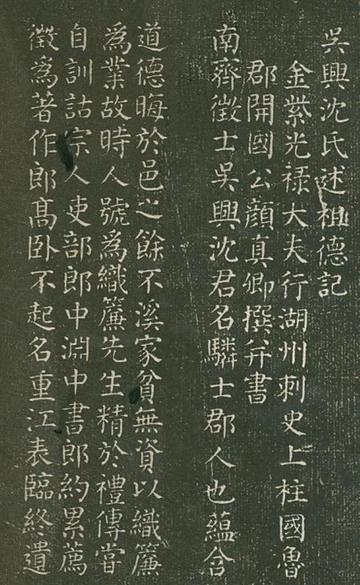 吳興沈氏述祖德記
金紫光祿大夫行湖州刺史上柱國魯
郡開國公顏真卿撰并書
南齊徵士吳興沈君名驎士郡人也蘊含
道德晦於邑之餘不溪家貧無資以織簾
為業故時人號為織簾先生精於禮傳嘗
自訓詁宗人吏部郎中淵中書郎約累薦
徵為著作郎高卧不起名重江表臨終遺